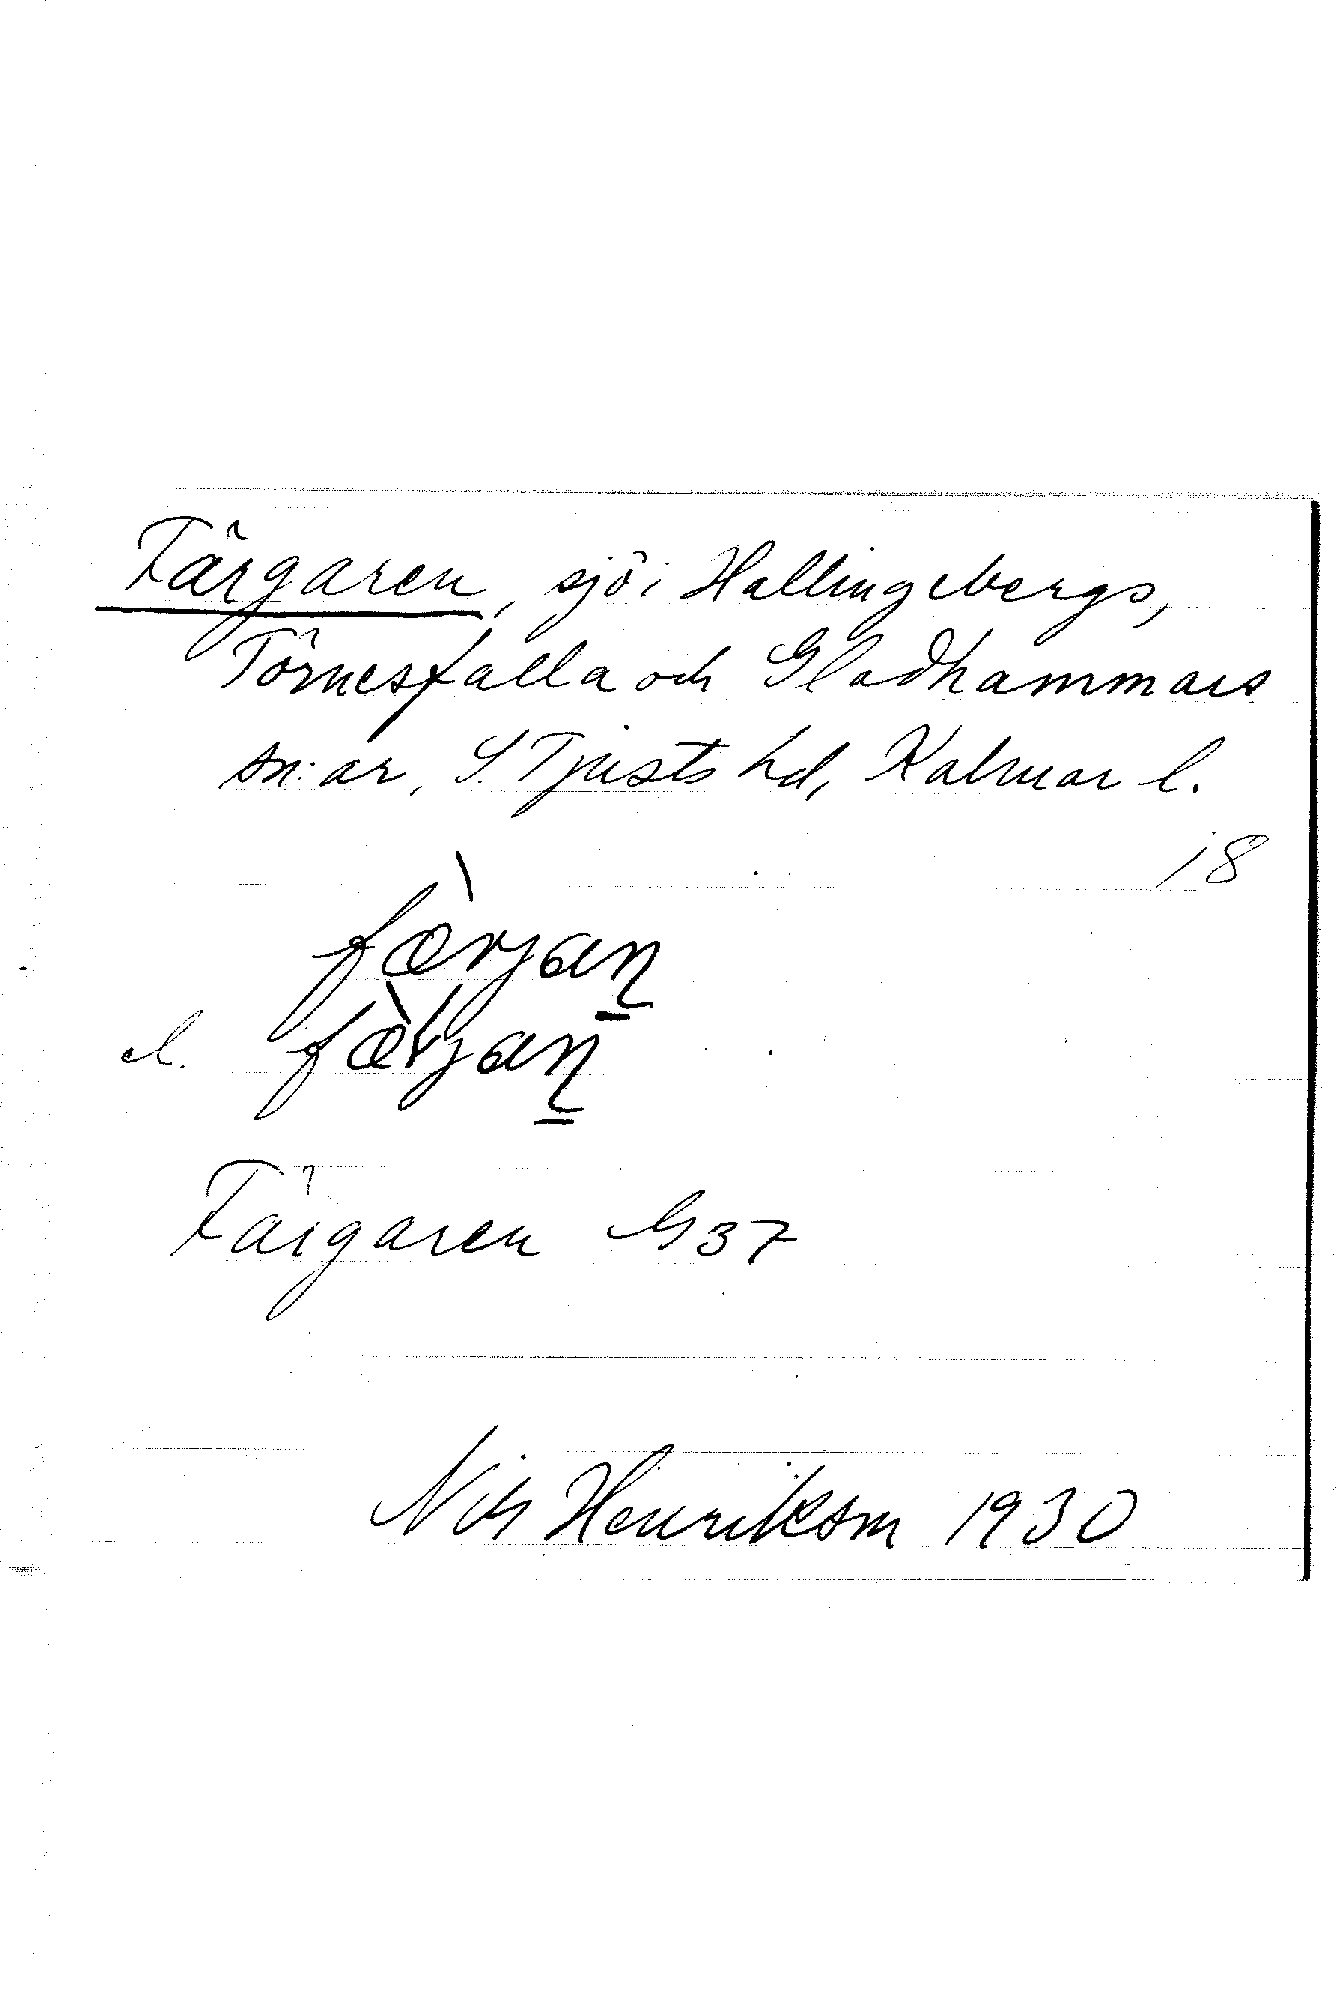 Färgaren, sjö i Hallingebergs,
Törnesfalla och Gladhammars
sn:ar, S. Tjusts hd, Kalmar l.
18
fæ̀rjan̲
el. fæ̀rjan̲
Färgaren G 37
Nils Henrikson 1930